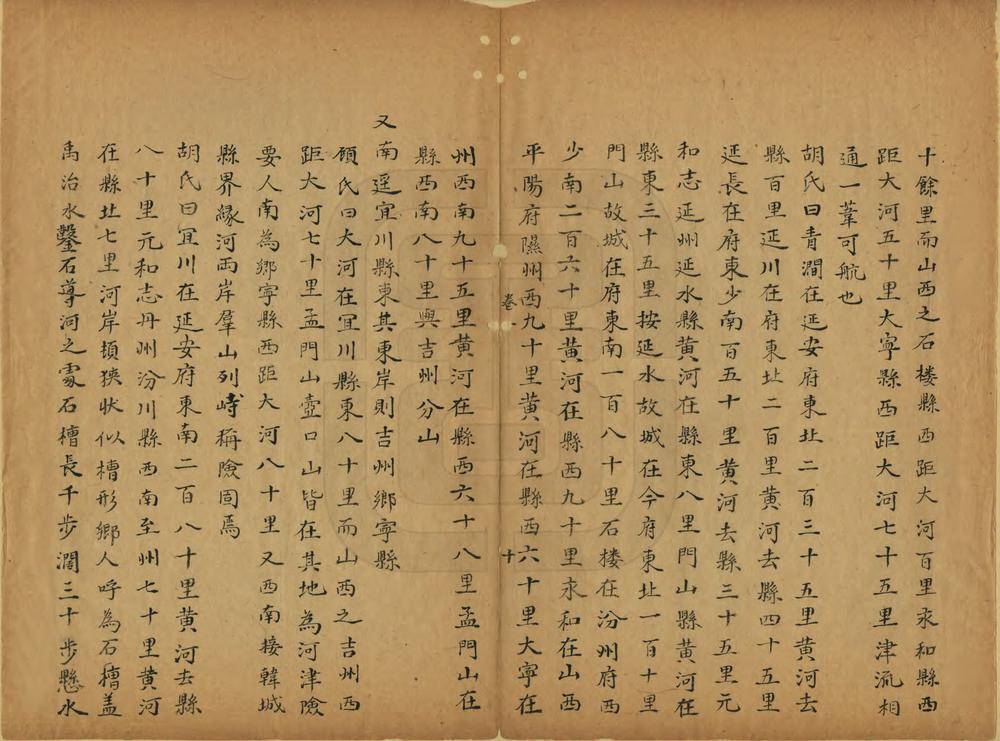 十餘里而山西之石楼縣西距大河百里永和縣西
距大河五十里大寧縣西距大河七十五里津流相
通一葦可航也
胡氏曰青澗在延安府東北二百三十五里黄河去
縣百里延川在府東北二百里黄河去縣四十五里
延長在府東少南百五十里黄河去縣三十五里元
和志延州延水縣黄河在縣東八里門山縣黄河在
縣東三十五里按延水故城在今府東北一百十里
門山故城在府東南一百八十里石楼在汾州府西
少南二百六十里黄河在縣西九十里永和在山西
平陽府隰州西九十里黄河在縣西六十里大寧在
卷 十
州西南九十五里黄河在縣西六十八里孟門山在
縣西南八十里與吉州分山
又南逕宜川縣東其東岸則吉州鄉寧縣
顧氏曰大河在宜川縣東八十里而山西之吉州西
距大河七十里孟門山壺口山皆在其地為河津險
要人南為鄉寧縣西距大河八十里又西南接韓城
縣界緣河兩岸羣山列峙稱險固焉
胡氏曰宜川在延安府東南二百八十里黄河去縣
八十里元和志丹州汾川縣西南至州七十里黄河
在縣北七里河岸頓狹状似槽形鄉人呼為石槽盖
禹治水鑿石導河之處石槽長千步濶三十步懸水